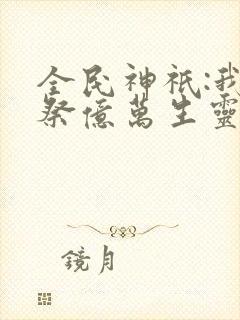 全民神祇:我
祭億萬生靈
鏡月